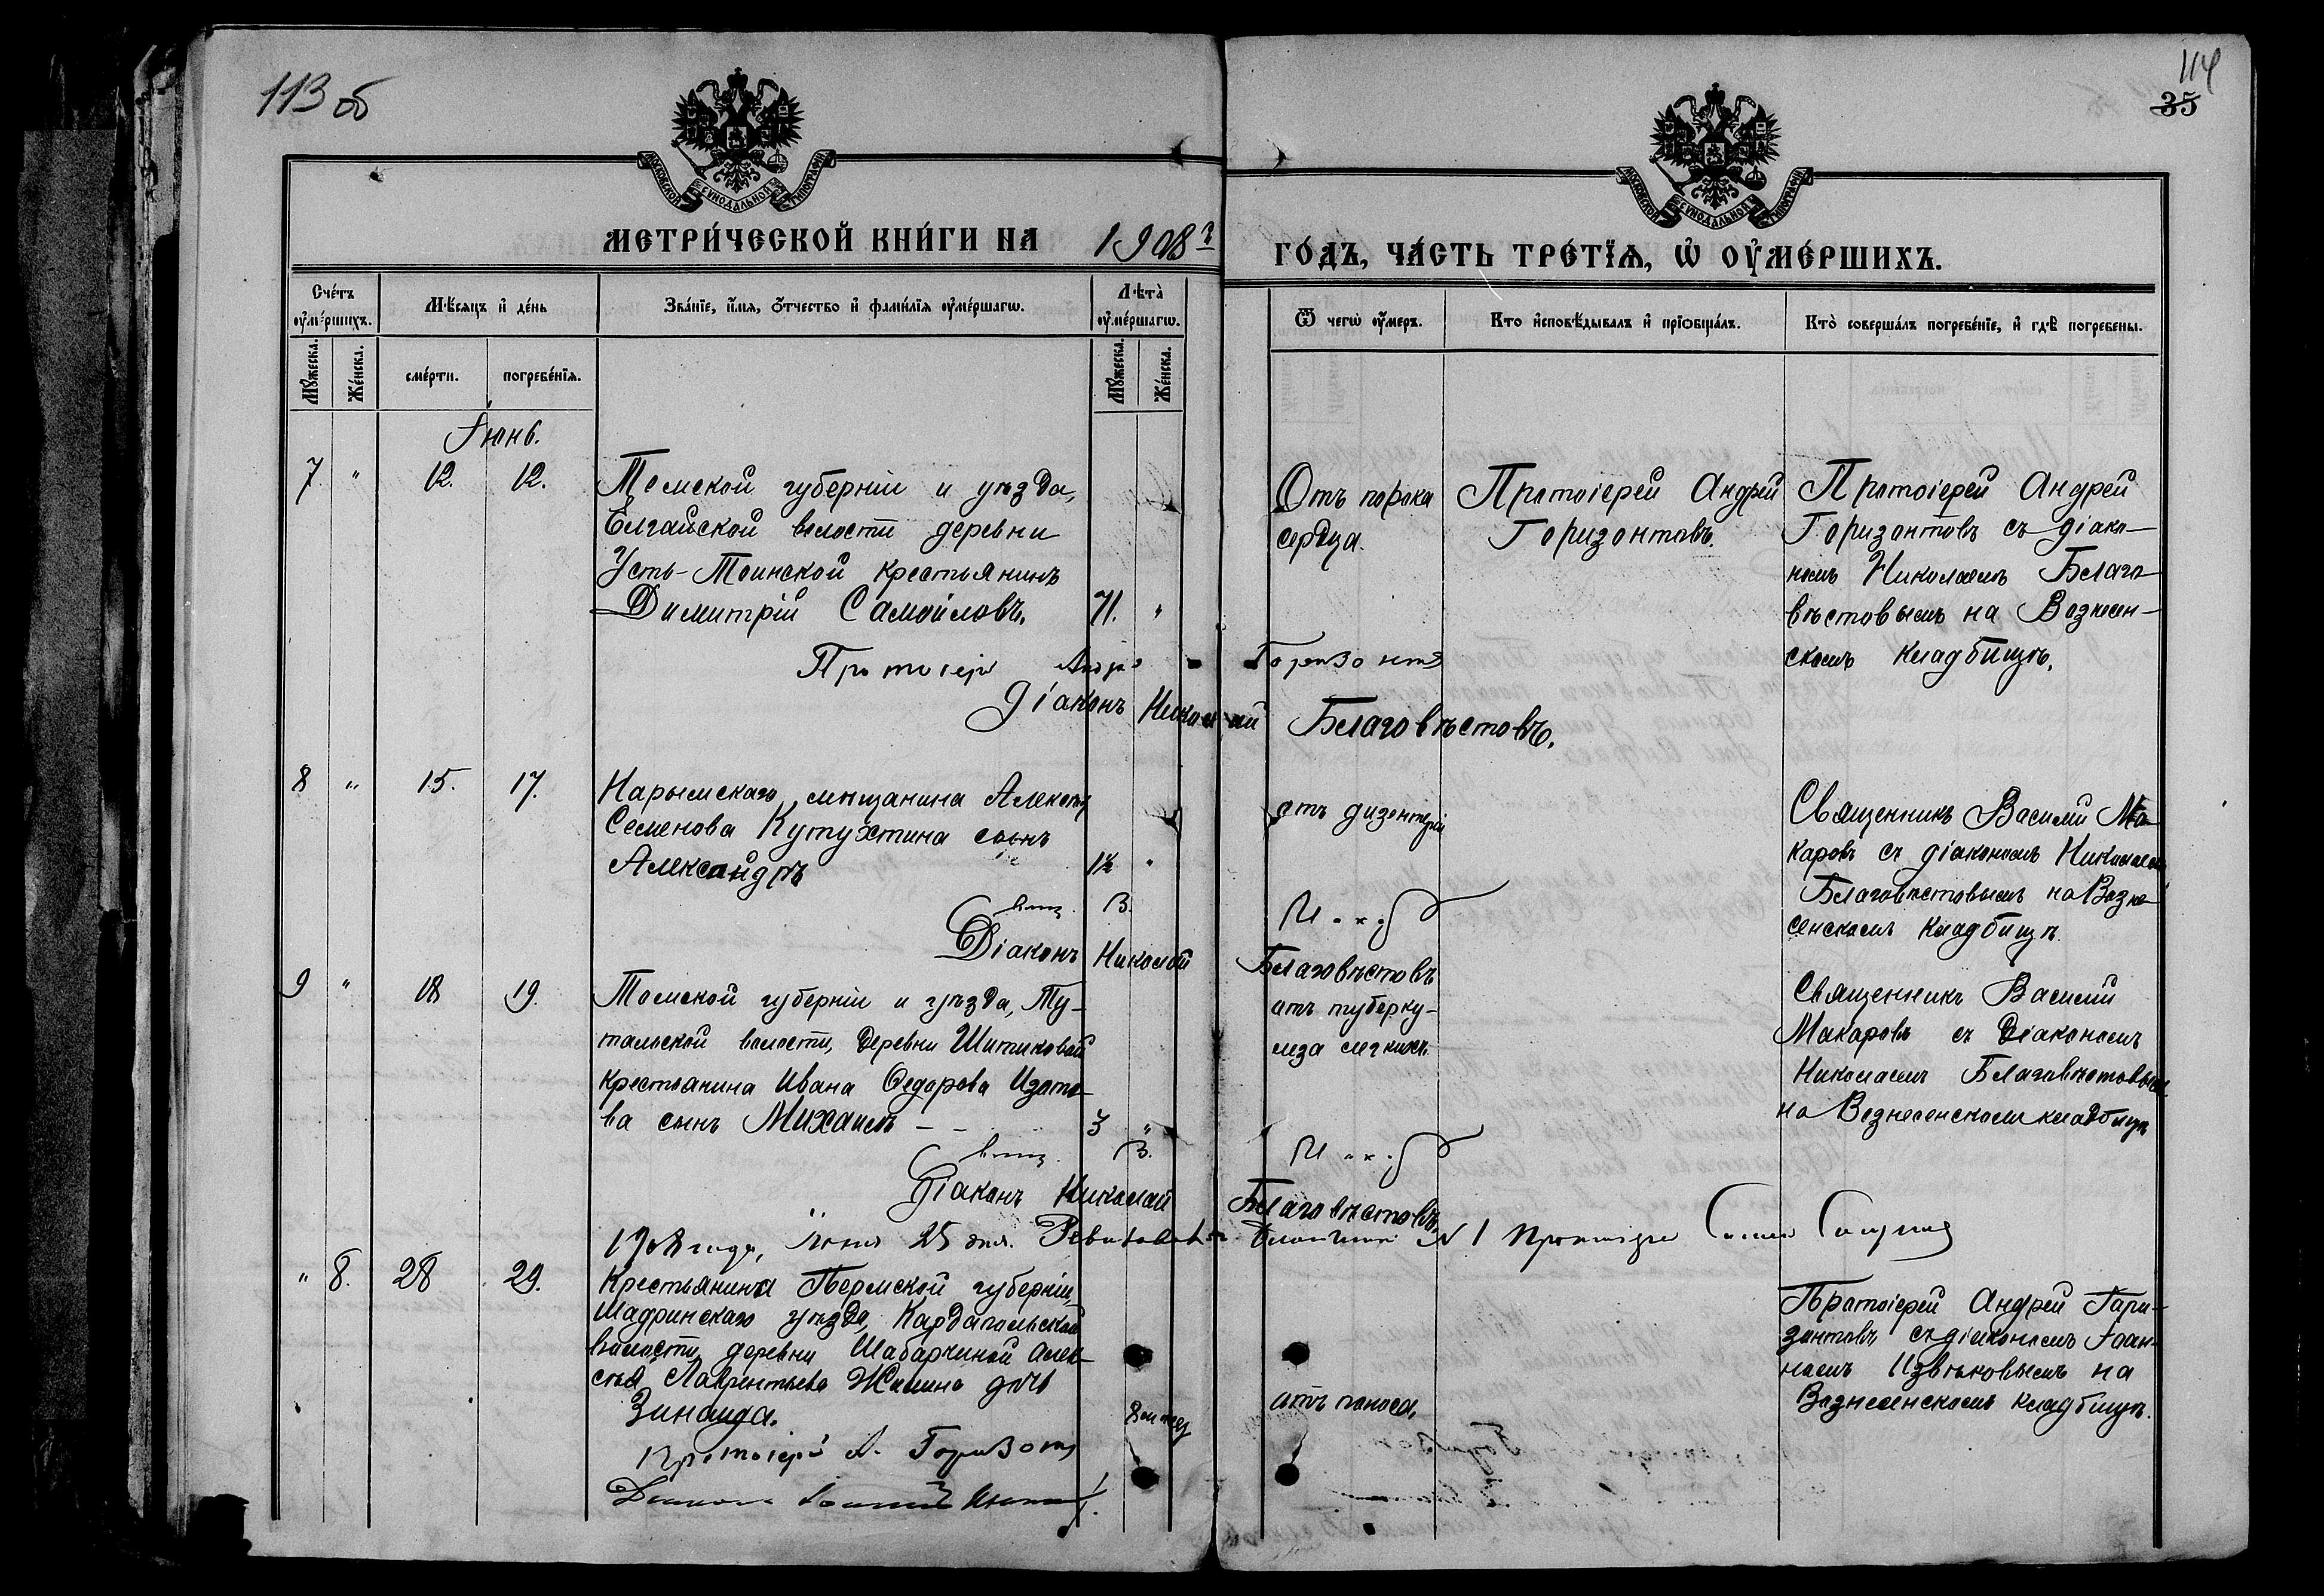 113 об
114
35
МОСКОВСКОЙ СѴНОДАЛЬНОЙ ТИПОГРАФІИ
МОСКОВСКОЙ СѴНОДАЛЬНОЙ ТИПОГРАФІИ
МЕТРИ́ЧЕСКОЙ КНИ́ГИ НА 1908 г
ГО́ДЪ, ЧА́СТЬ ТРЕ́ТЇѦ, Ѡ҆ ОУ҆МЕ́РШИХЪ.
Сче́тъ оу҆ме́ршихъ.
Мѣ́сяцъ и҆ де́нь
Зва́нїе, и҆́мѧ, о҆́тчество и҆ фами́лїѧ оу҆ме́ршагѡ.
Лѣта̀ оу҆ме́ршагѡ.
Ѿ чегѡ̀ оу҆́меръ.
Кто̀ и҆сповѣ́дывалъ и҆ прїѡбща́лъ.
Кто̀ соверша́лъ погребе́нїе, и҆ гдѣ̀ погребены̀.
Мꙋ́жеска.
Же́нска.
сме́рти.
погребе́нїѧ.
Мꙋ́жеска.
Же́нска.
Іюнь.
7 " 12. 12.
Томской губерніи и уѣзда,
Елгайской волости деревни
Усть-Тоинской крестьянинъ
Димитрій Самойловъ. 71. "
Отъ порока
сердца.
Протоіерей Андрей
Горизонтовъ.
Протоіерей Андрей
Горизонтовъ съ діако-
номъ Николаемъ Благо-
вѣстовымъ на Вознесен-
скомъ кладбищѣ.
Протоіерей Андрей Горизонтовъ
Діаконъ Николай Благовѣстовъ.
8 " 15. 17.
Нарымскаго мѣщанина Алексѣя
Семенова Кутухтина сынъ
Александръ "
отъ дизентеріи
Священникъ Василій Ма-
каровъ съ діакономъ Николаемъ
Благовѣстовымъ на Возне-
сенскомъ кладбищѣ.
Свящ. В.
Діаконъ Николай Благовѣстовъ
9 " 18 19.
Томской губерніи и уѣзда, Ту-
тальской волости, деревни Шитиковой
крестьянина Ивана Ѳедорова Изото-
ва сынъ Михаилъ - - 3 "
отъ туберку-
леза легкихъ.
Священникъ Василій
Макаровъ съ Діакономъ
Николаемъ Благовѣстовымъ
на Вознесенскомъ кладбищѣ
Свящ. В.
Діаконъ Николай Благовѣстовъ
1908 года, Іюня 25 дня. № 1 Протоіерей
" 8. 28 29.
Крестьянина Пермской губерніи,
Шадринскаго уѣзда,
волости, деревни Шабарчиной Алек-
сѣя Лаврентьева Жилина дочь
Зинаида. 8 мѣсяц
отъ поноса.
Протоіерей Андрей Гори-
зонтовъ съ діакономъ Іоан-
номъ Извѣковымъ на
Вознесенскомъ кладбищѣ.
Протоіерей А. Горизонтовъ
Діаконъ Іоаннъ